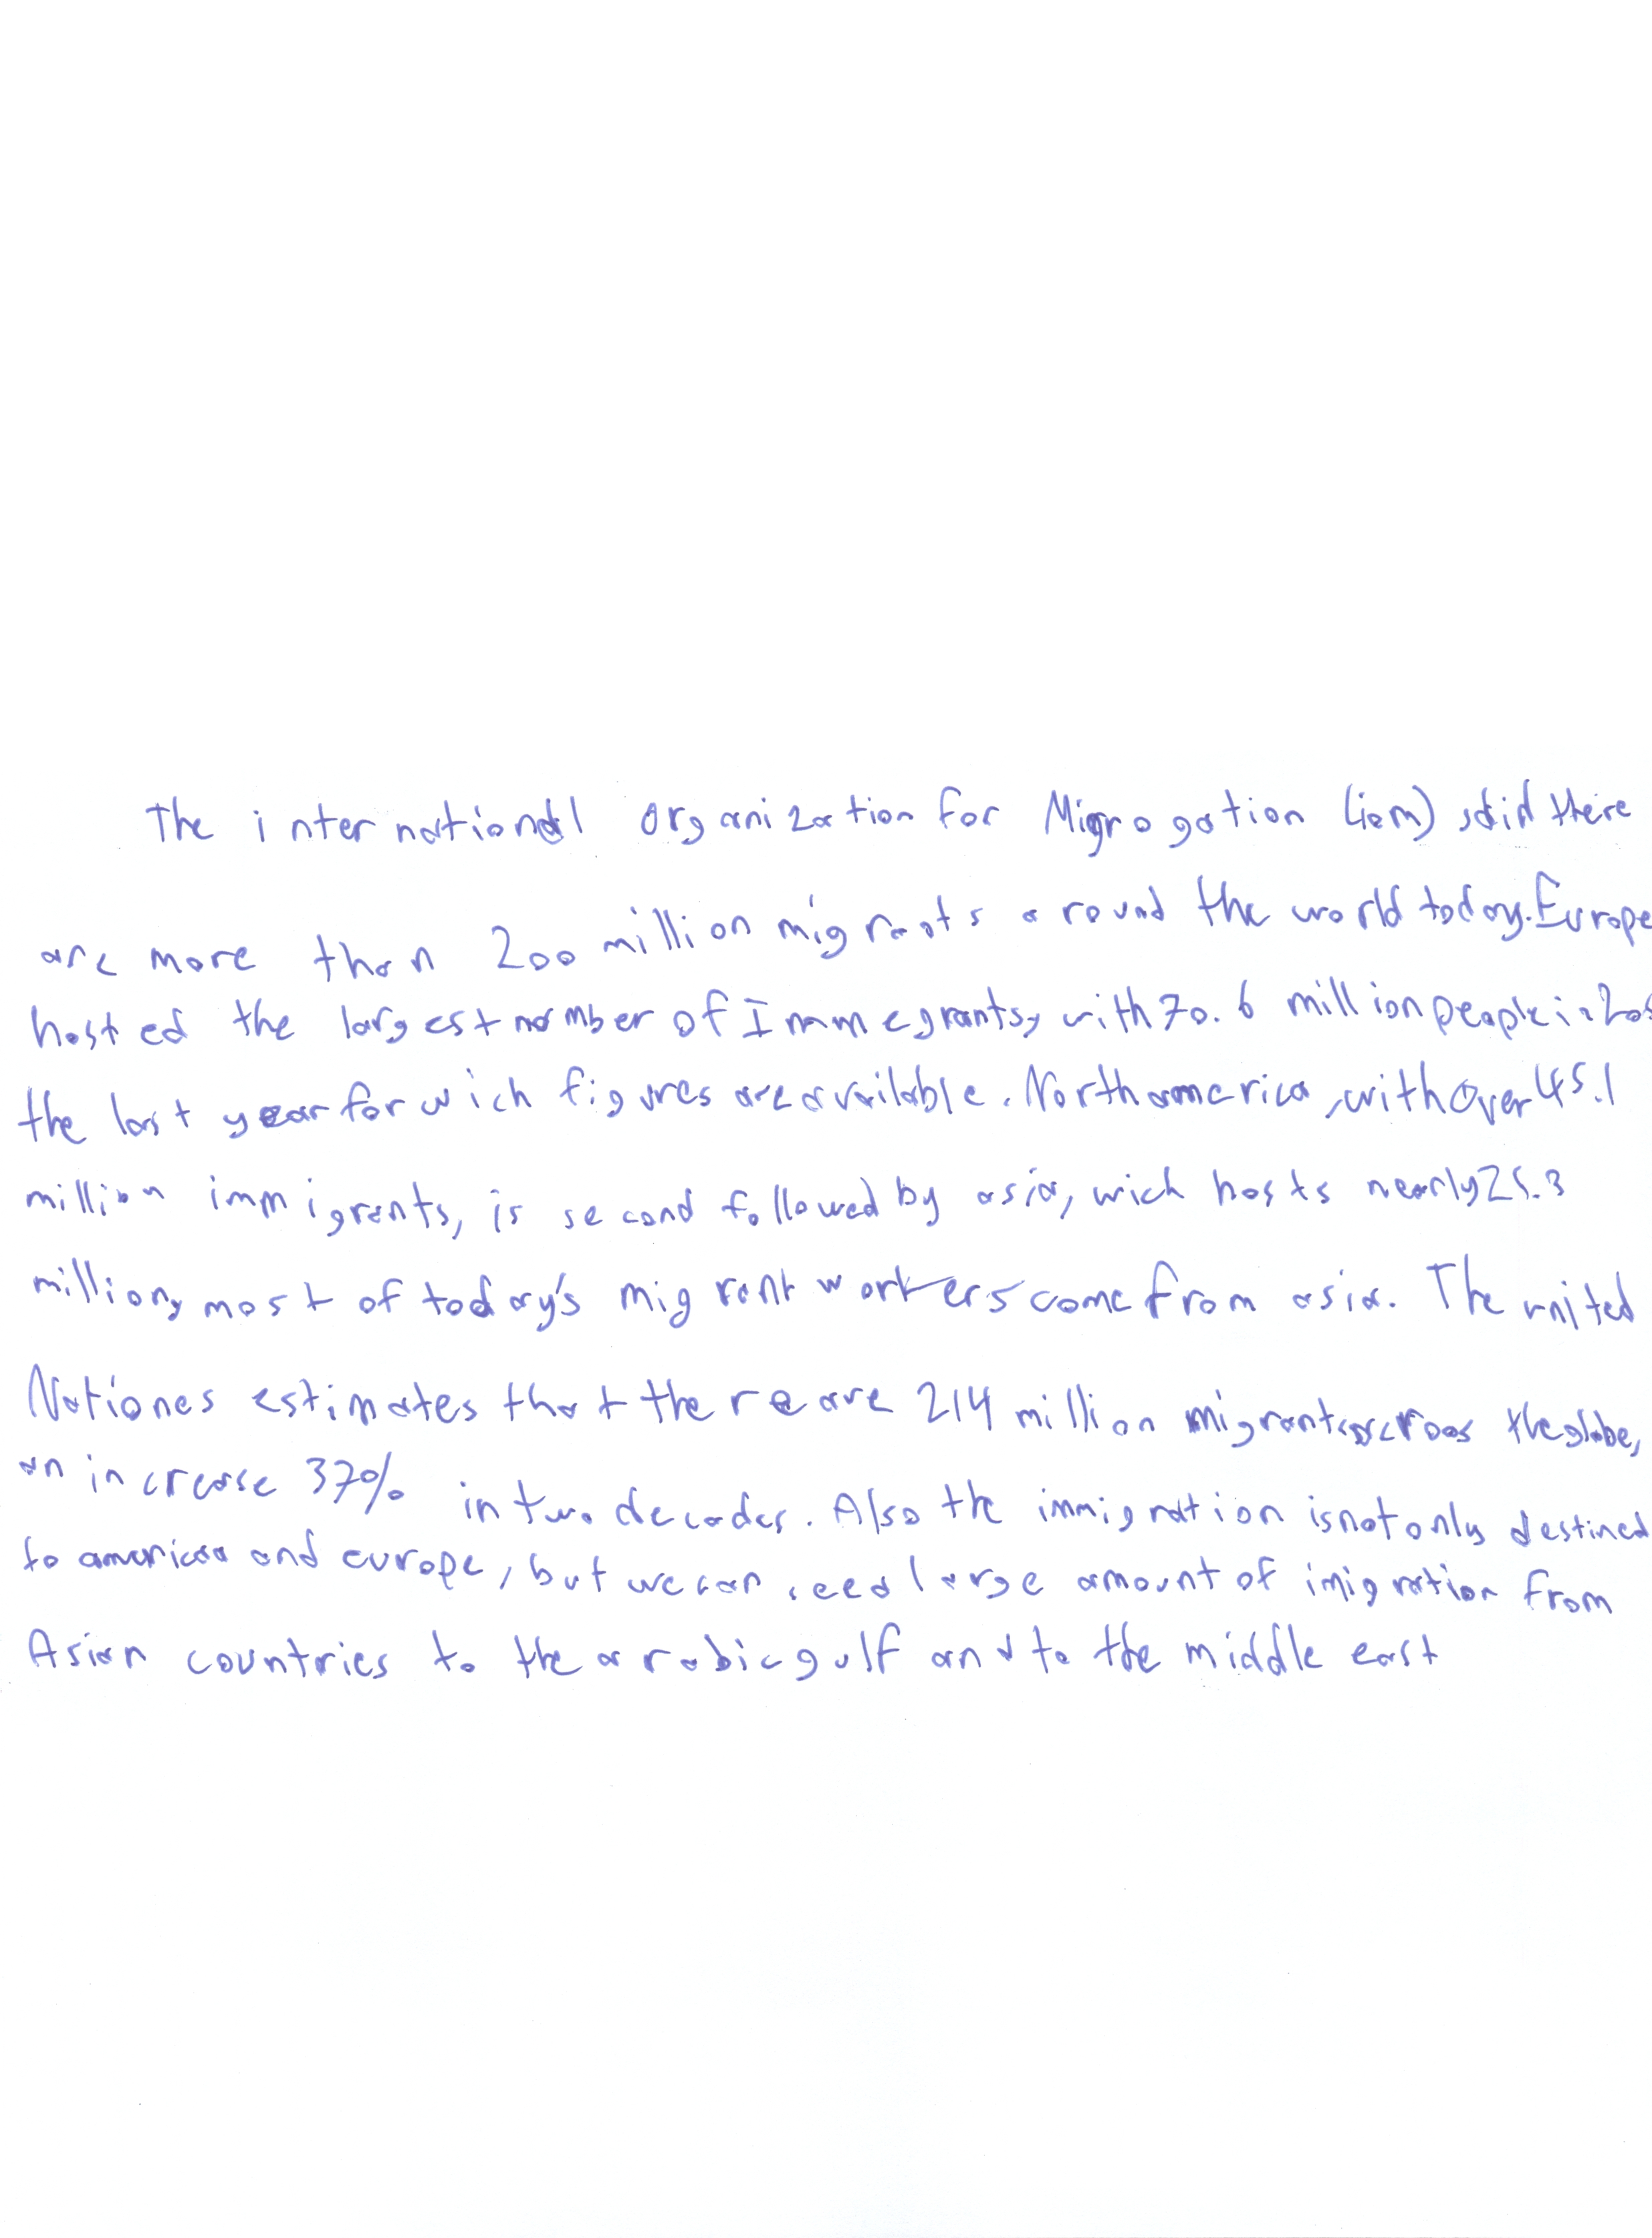 The international Organization for Migrogation (iom) said there
are more than 200 million migrants around the world today. Europe
hosted the largest nomber of Immegrants, with 70.6 million people in
the last year for wich figures are available. North america, with over 45.1
million immigrants, is second followed by asia, wich hosts nearly 25.3
million, most of today's migrant workers come from asia. The united
Nationes estimates that there are 214 million migrants across the globe,
an increase 37% in two decades. Also the immigration is not only destined
to america and europe, but we can seea large amount of imigration from
Asian countries to the arabic gulf and to the middle east